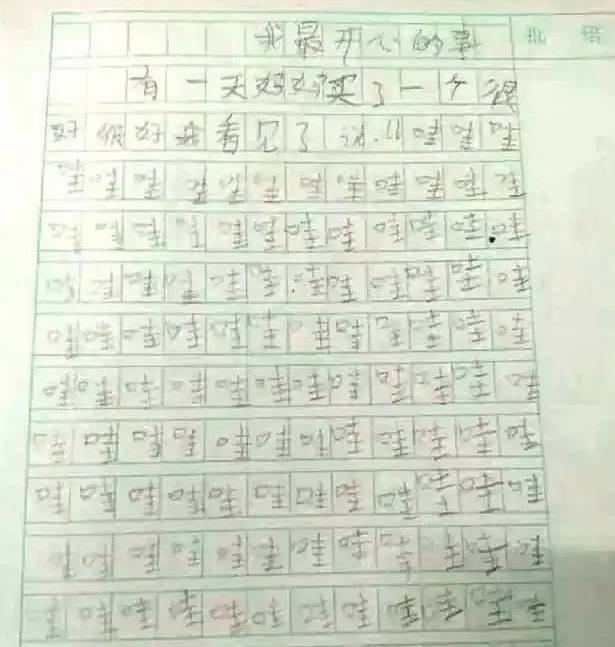 我最开心的事
批 语
有一天妈妈买了一个很
好很好我看见了说:“哇哇哇
哇哇哇哇哇哇哇哇哇哇哇哇
哇哇哇哇哇哇哇哇哇哇哇哇
哇哇哇哇哇哇哇哇哇哇哇哇
哇哇哇哇哇哇哇哇哇哇哇哇
哇哇哇哇哇哇哇哇哇哇哇哇
哇哇哇哇哇哇哇哇哇哇哇哇
哇哇哇哇哇哇哇哇哇哇哇哇
哇哇哇哇哇哇哇哇哇哇哇哇
哇哇哇哇哇哇哇哇哇哇哇哇